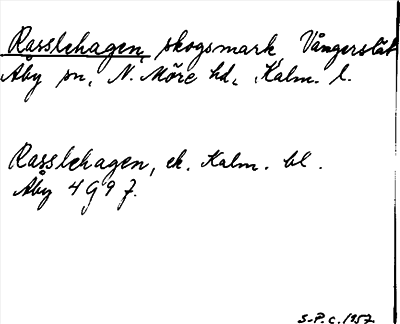 Rasslehagen, skogsmark, Vångerslät
Åby sn, N. Möre hd, Kalm. l.
Rasslehagen, ek. Kalm. bl.
Åby 4 G 9 f.
S-P.C. 1957